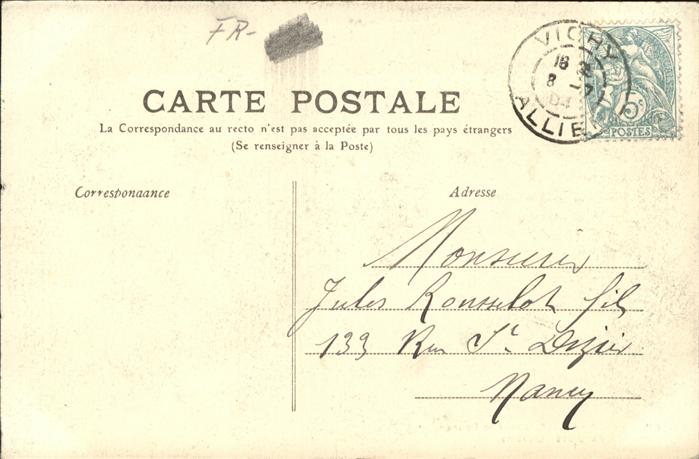 FR-
VICHY
ALLIER
5c
POSTES
CARTE POSTALE
La Correspondance au recto n'est pas acceptée par tous les pays étrangers
(Se renseigner à la Poste)
Correspondance
Adresse
Monsieur
Jules Rousselot fils
133 Rue St Dizier
Nancy